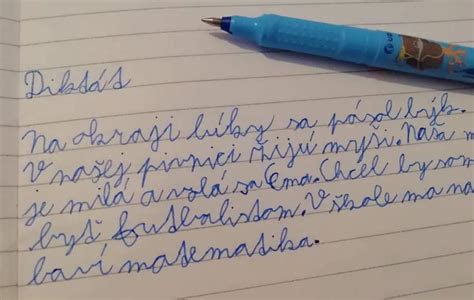 Diktát
Na okraji lúky sa pásol býk.
V našej pivnici žijú myši. Naša m
je milá a volá sa Ema. Chcel by som
byť futbalistom. V škole ma na
baví matematika.